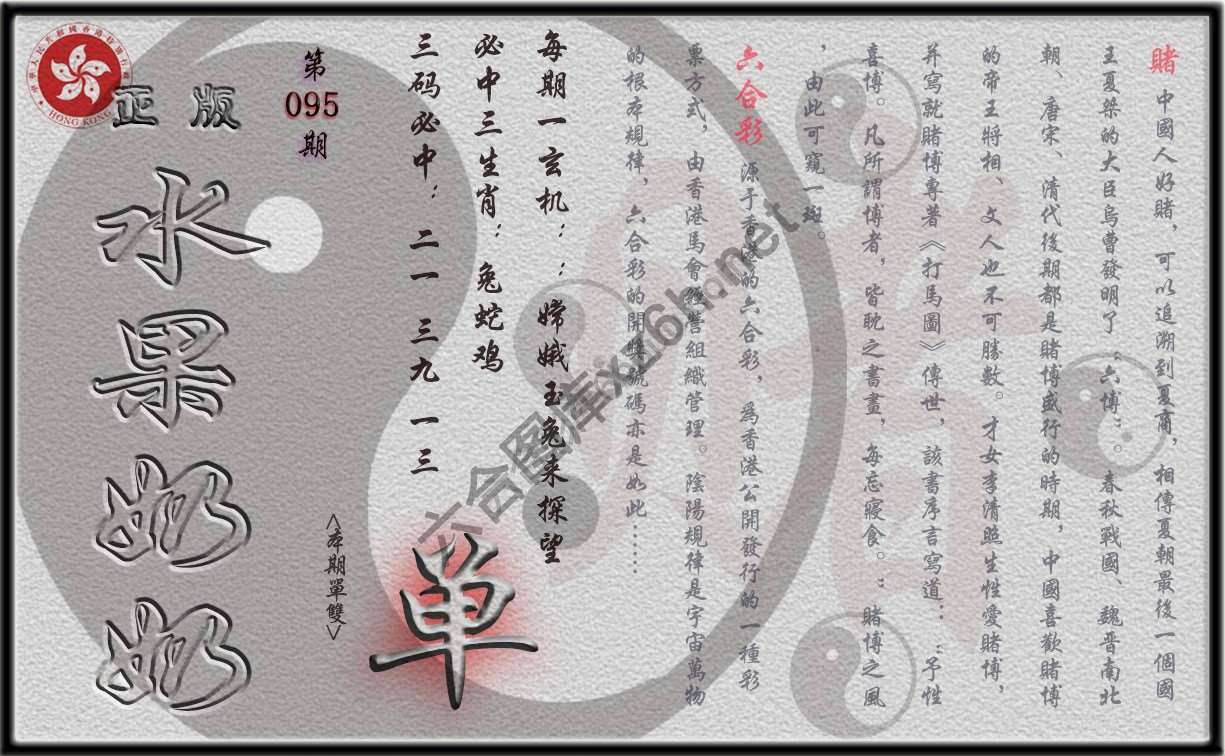 賭 中國人好賭，可以追溯到夏商，相傳夏朝最後一個國
王夏桀的大臣烏曹發明了“六博”。春秋戰國、魏晋南北
朝、唐宋、清代後期都是賭博盛行的時期，中國喜歡賭博
的帝王將相、文人也不可勝數。才女李清照生性愛賭博，
并寫就賭博專著《打馬圖》傳世，該書序言寫道：“予性
喜博。凡所謂博者，皆耽之書畫，每忘寢食。”賭博之風
，由此可窺一斑。
六合彩 源于香港的六合彩，爲香港公開發行的一種彩
票方式，由香港馬會經營組織管理。陰陽規律是宇宙萬物
的根本規律，六合彩的開獎號碼亦是如此……
每期一玄机：：嫦娥玉兔来探望
必中三生肖：兔蛇鸡
三码必中：二一 三九 一三
第
095
期
<本期單雙>
单
正版
水果奶奶
HONG KONG
六合图库xg16h.net